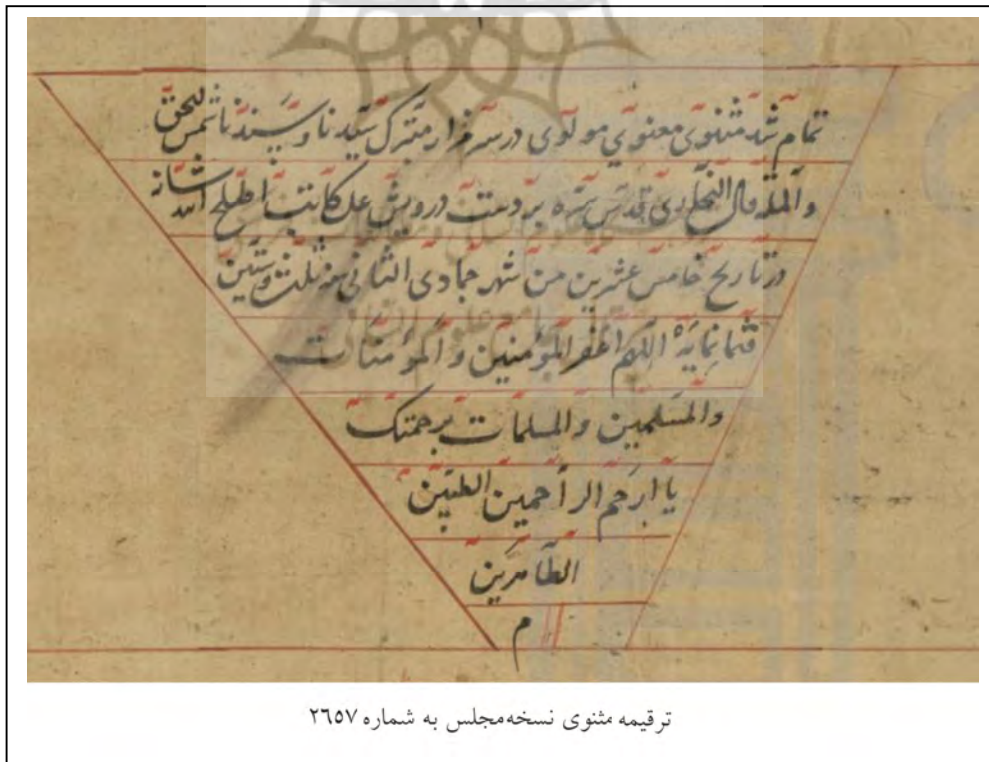 تمام شد مثنوی معنوی مولوی در سر مزار متبرک سیدنا و سندنا شمس الحق
والملة قدس سره بر دست درویش علی کاتب اصلح الله شانه
در تاریخ خامس عشرین من شهر جمادی الثانی سنه ثلث وستین
و ثمانمایه اللهم اغفر المؤمنین والمؤمنات
والمسلمین والمسلمات برحمتک
یا ارحم الراحمین الطیبین
الطاهرین
م
ترقیمه مثنوی نسخه مجلس به شماره ۲۶۵۷